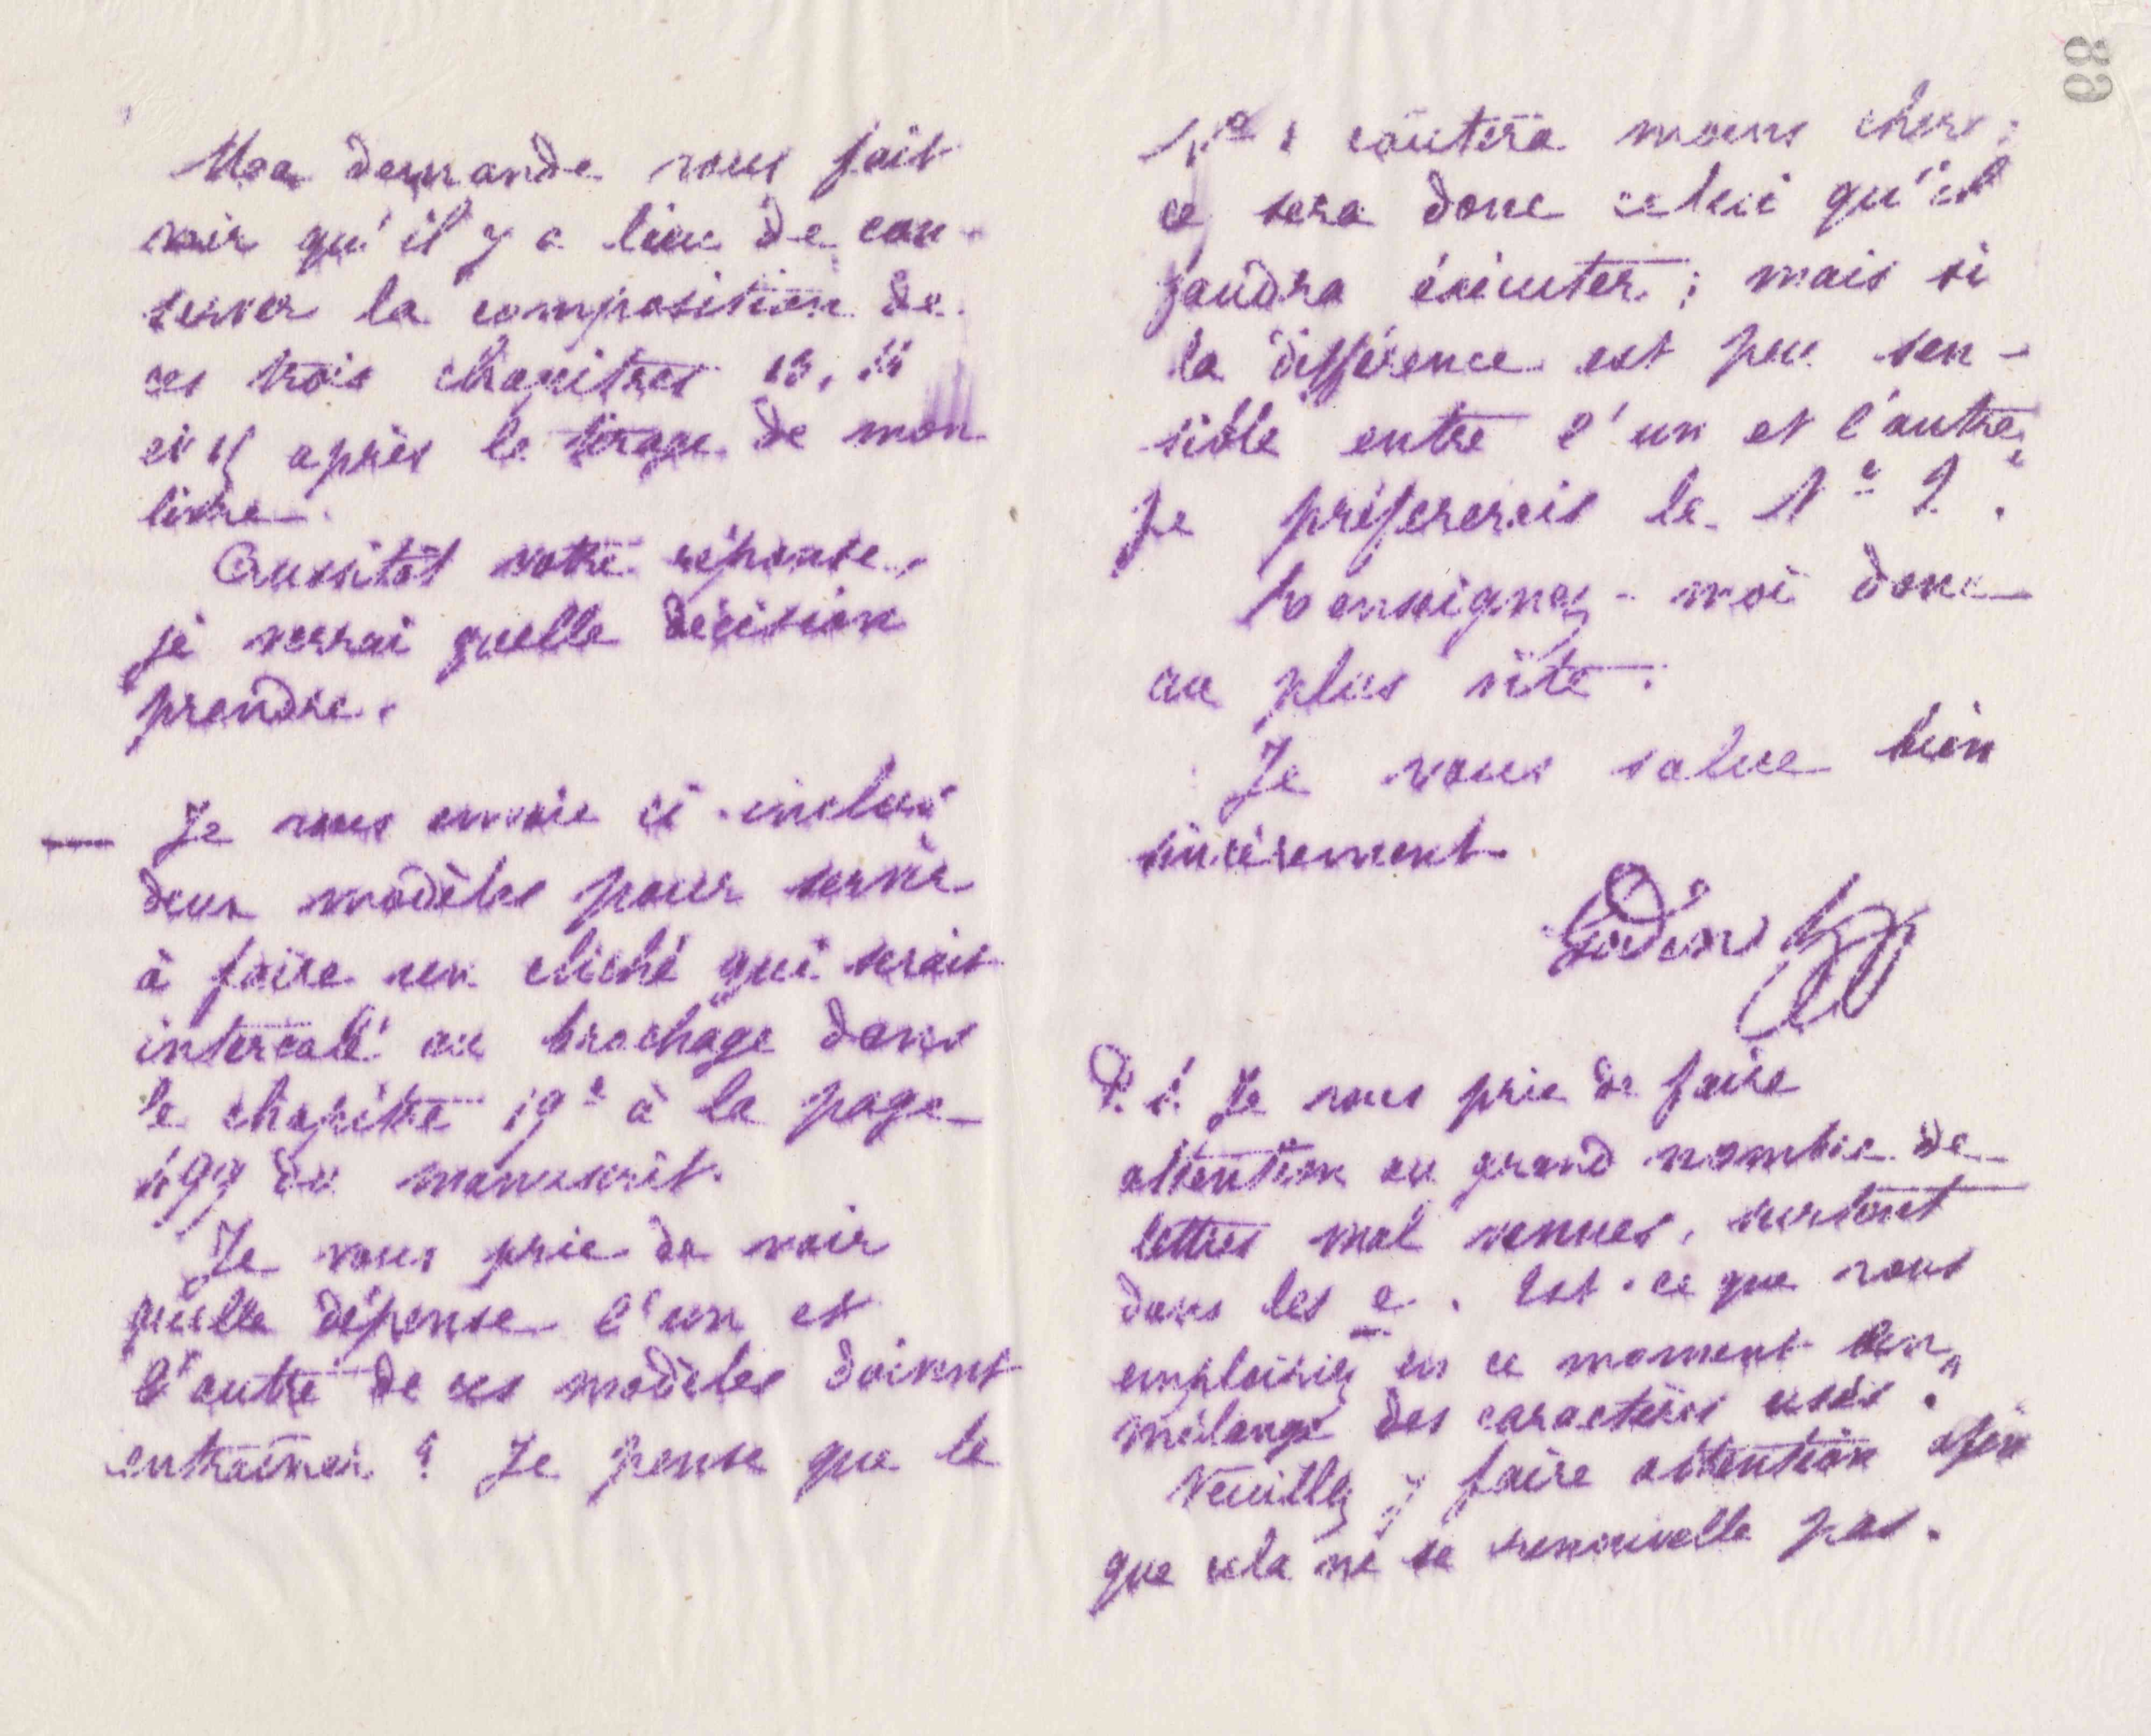 Ma demande vous fait
voir qu'il y a lieu de con-
server la composition de
ces trois chapitres 13, 14
et 15 après le tirage de mon
livre.
Aussitôt votre réponse,
je verrai quelle décision
prendre.
— Je vous envoie ci-inclus
deux modèles pour servir
à faire un cliché qui serait
intercalé au brochage dans
le chapitre 19e à la page
499 du manuscrit.
Je vous prie de voir
quelle dépense l'un et
l'autre de ces modèles doivent
entraîner ? Je pense que le
89
No 1 coûtera moins cher ;
ce sera donc celui qu'il
faudra exécuter ; mais si
la différence est peu sen-
sible entre l'un et l'autre,
je préfererais le No 2.
Renseignez-moi donc
au plus vite.
Je vous salue bien
sincèrement.
Godin
P. S. Je vous prie de faire
attention au grand nombre de
lettres mal venues, surtout
dans les e. Est-ce que vous
emploiriez en ce moment en
mélange des caractères usés ?
Veuillez y faire attention afin
que cela ne se renouvelle pas.